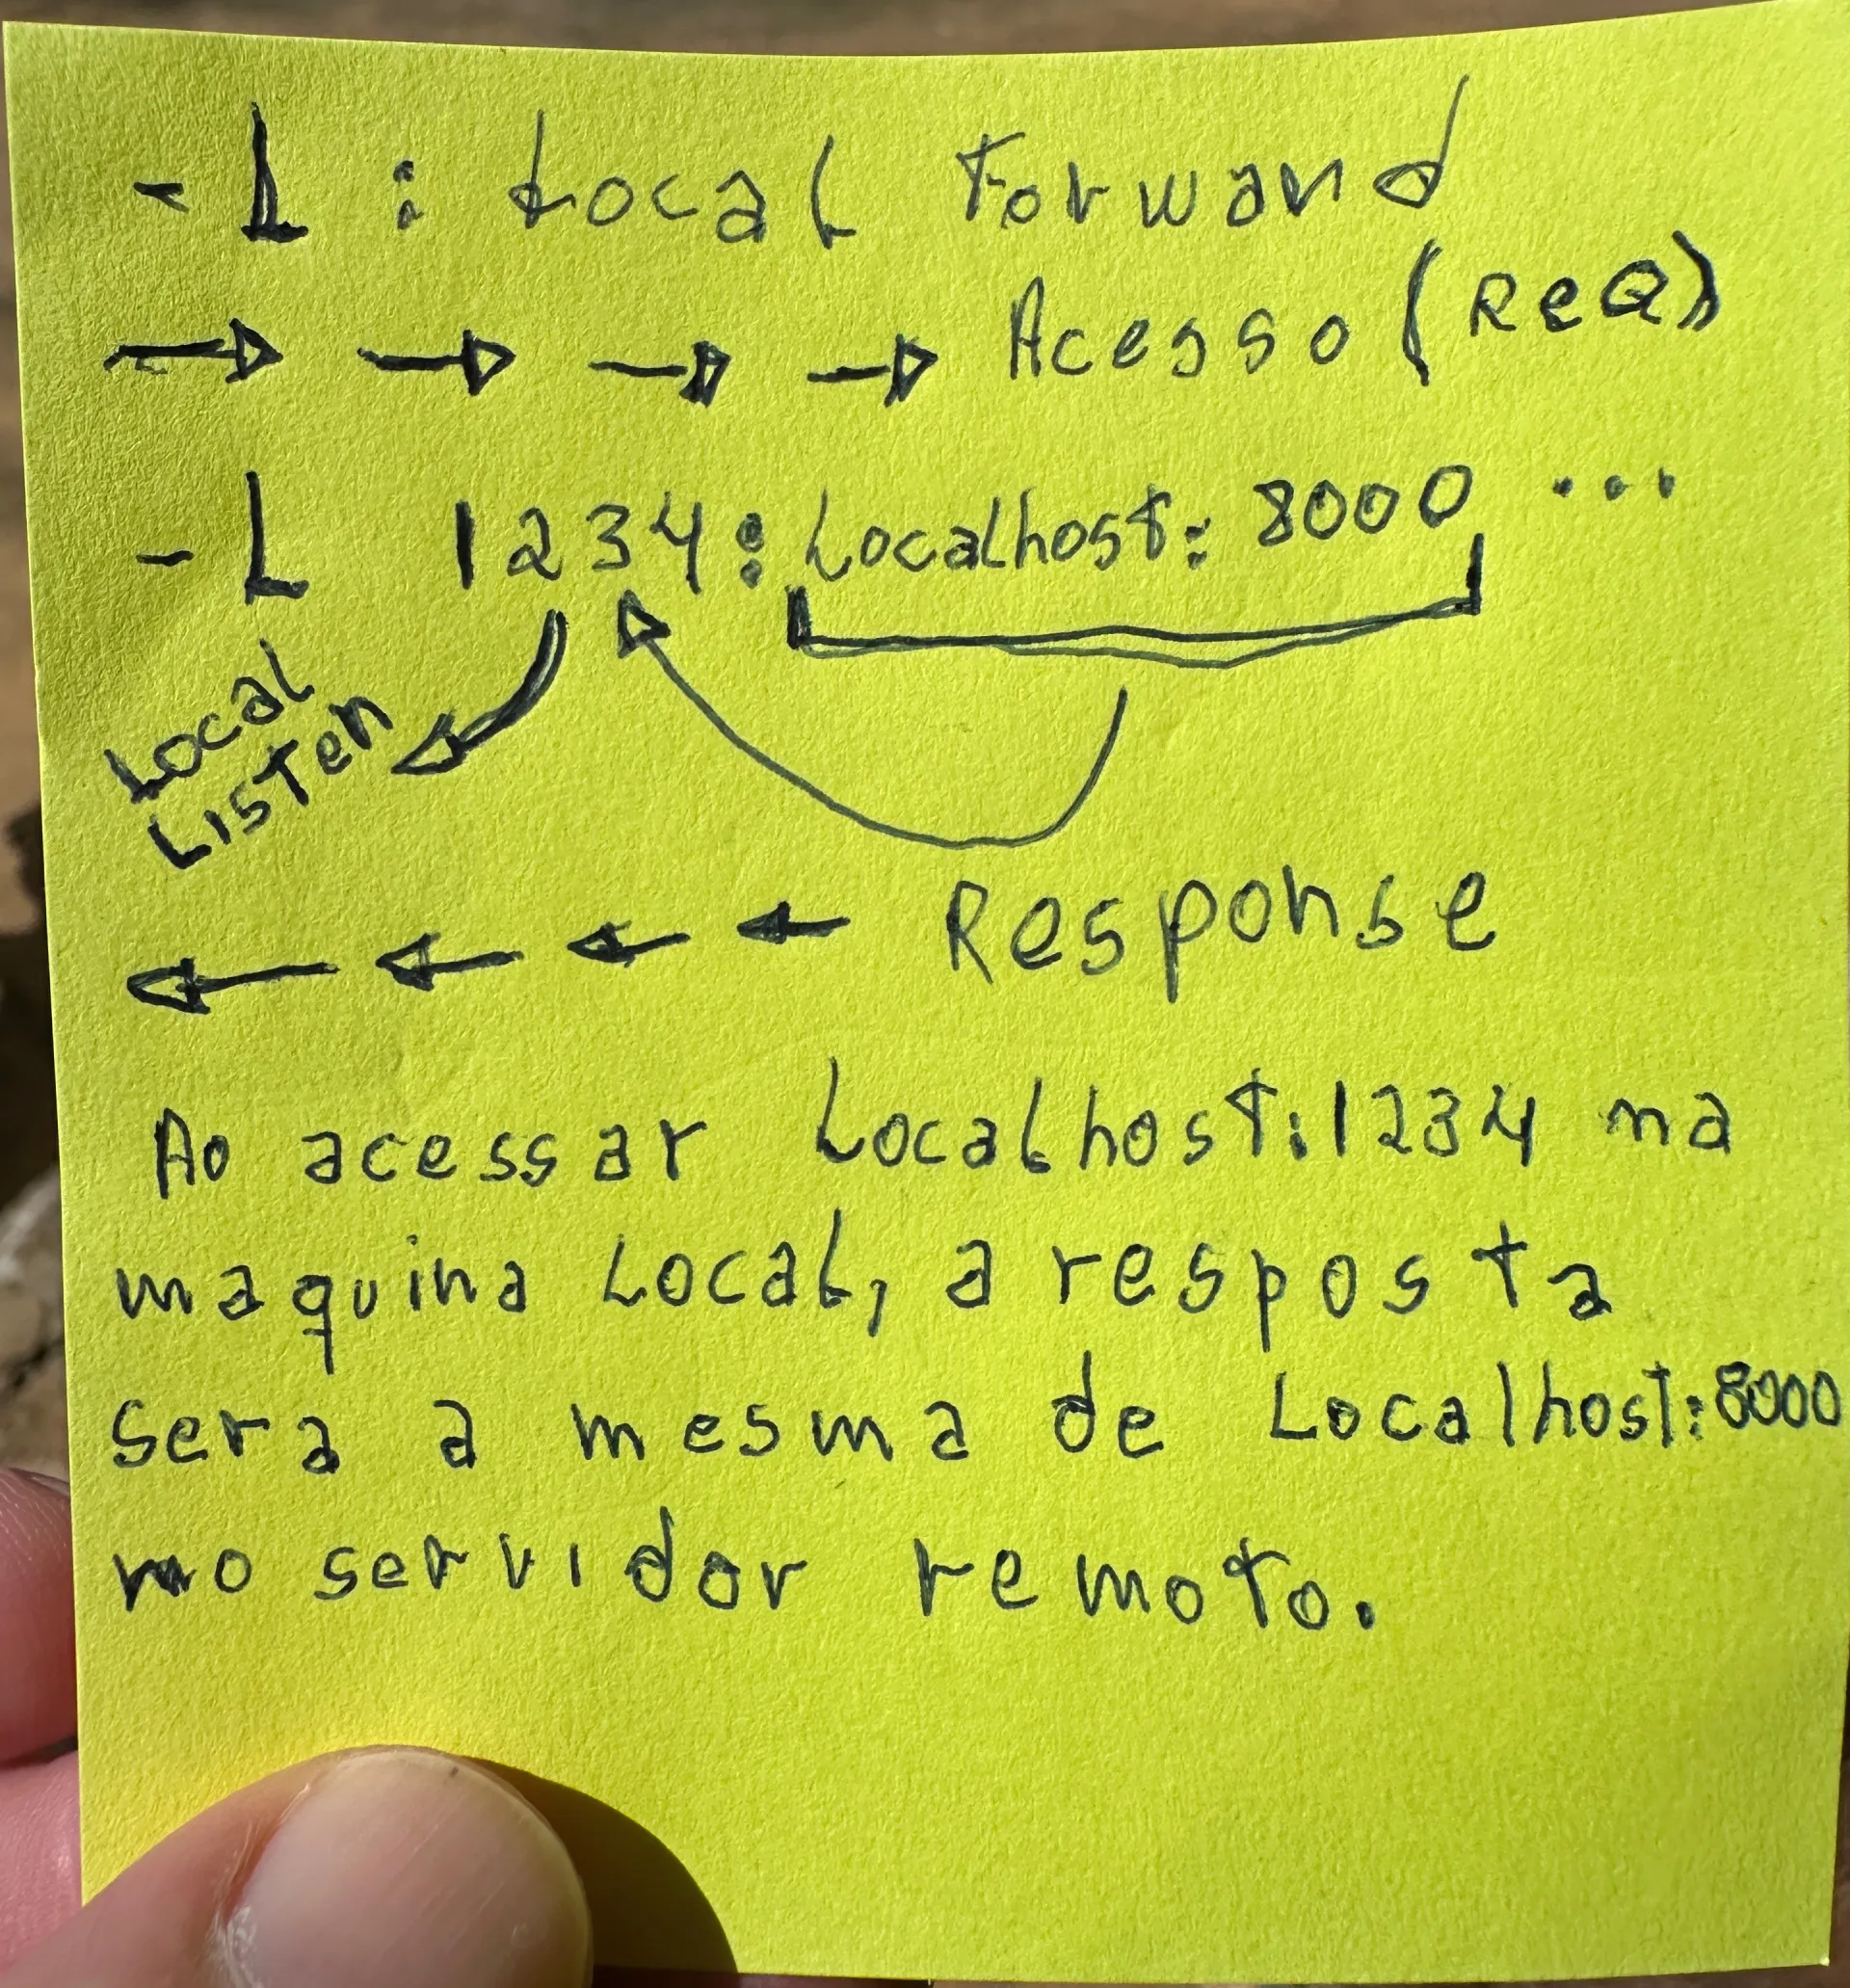 -L : Local Forward
Acesso (ReQ)
-L 1234:Localhost:8000 ...
Local
Listen
Response
Ao acessar Localhost:1234 na
maquina Local, a resposta
sera a mesma de Localhost:8000
no servidor remoto.